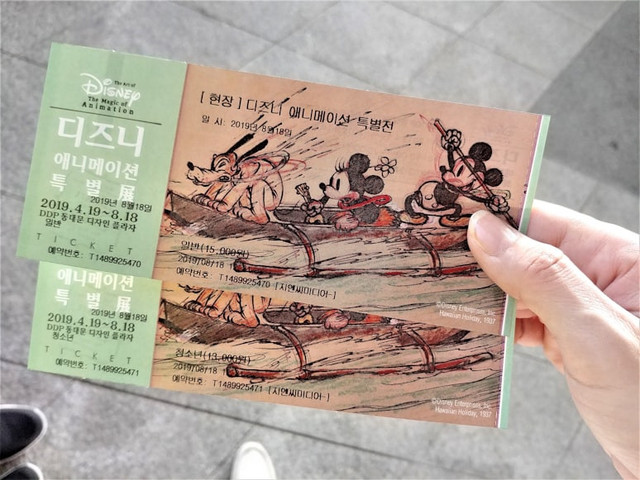 The Art of
DISNEY
The Magic of
Animation
디즈니
애니메이션
특 별 展
2019년 8월18일
2019.4.19~8.18
DDP 동대문 디자인 플라자
일반
TICKET
예약번호: T1489925470
[ 현장 ] 디즈니 애니메이션 특별전
일 시: 2019년 8월18일
일반(15,000원)
2019/08/18
예약번호: T1489925470 [지엔씨미디어-]
©Disney Enterprises, Inc.
Hawaiian Holiday, 1937
애니메이션
특 별 展
2019년 8월18일
2019.4.19~8.18
DDP 동대문 디자인 플라자
청소년
TICKET
예약번호: T1489925471
청소년(13,000원)
2019/08/18
예약번호: T1489925471 [지엔씨미디어-]
©Disney Enterprises, Inc.
Hawaiian Holiday, 1937